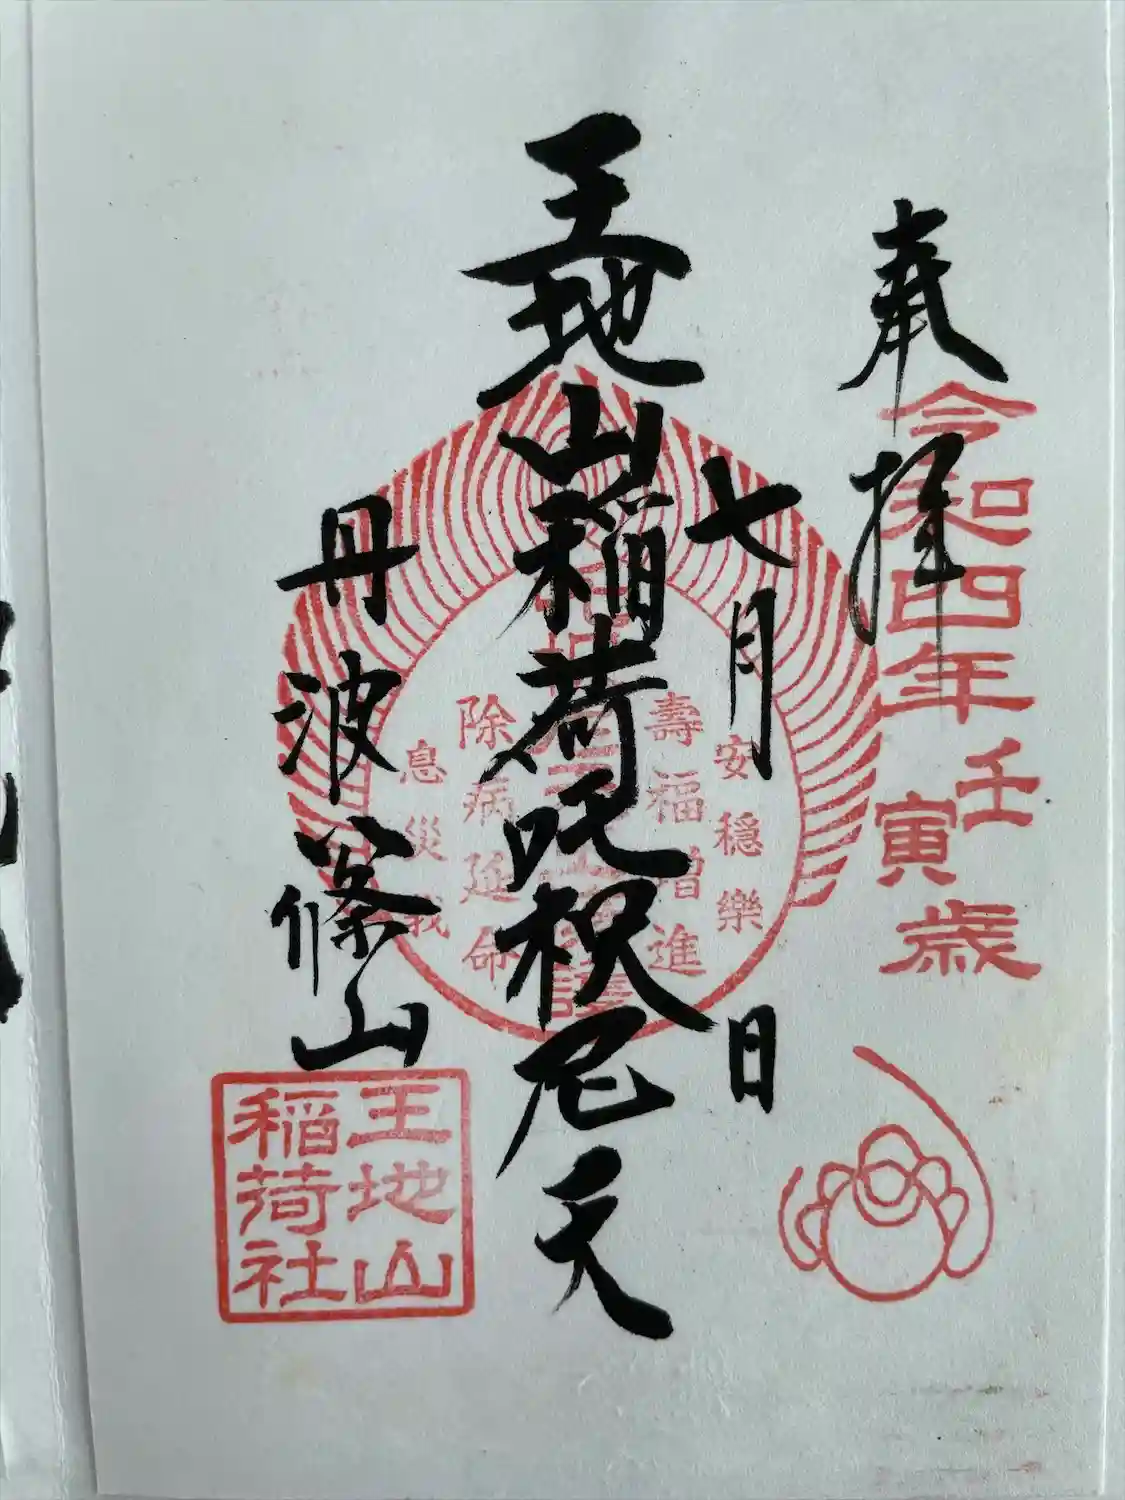 奉拝
令和四年壬寅歳
七月 日
王地山稲荷吒枳尼天
丹波篠山
安穏樂
壽福増進
除病延命
息災
王地山
稲荷社